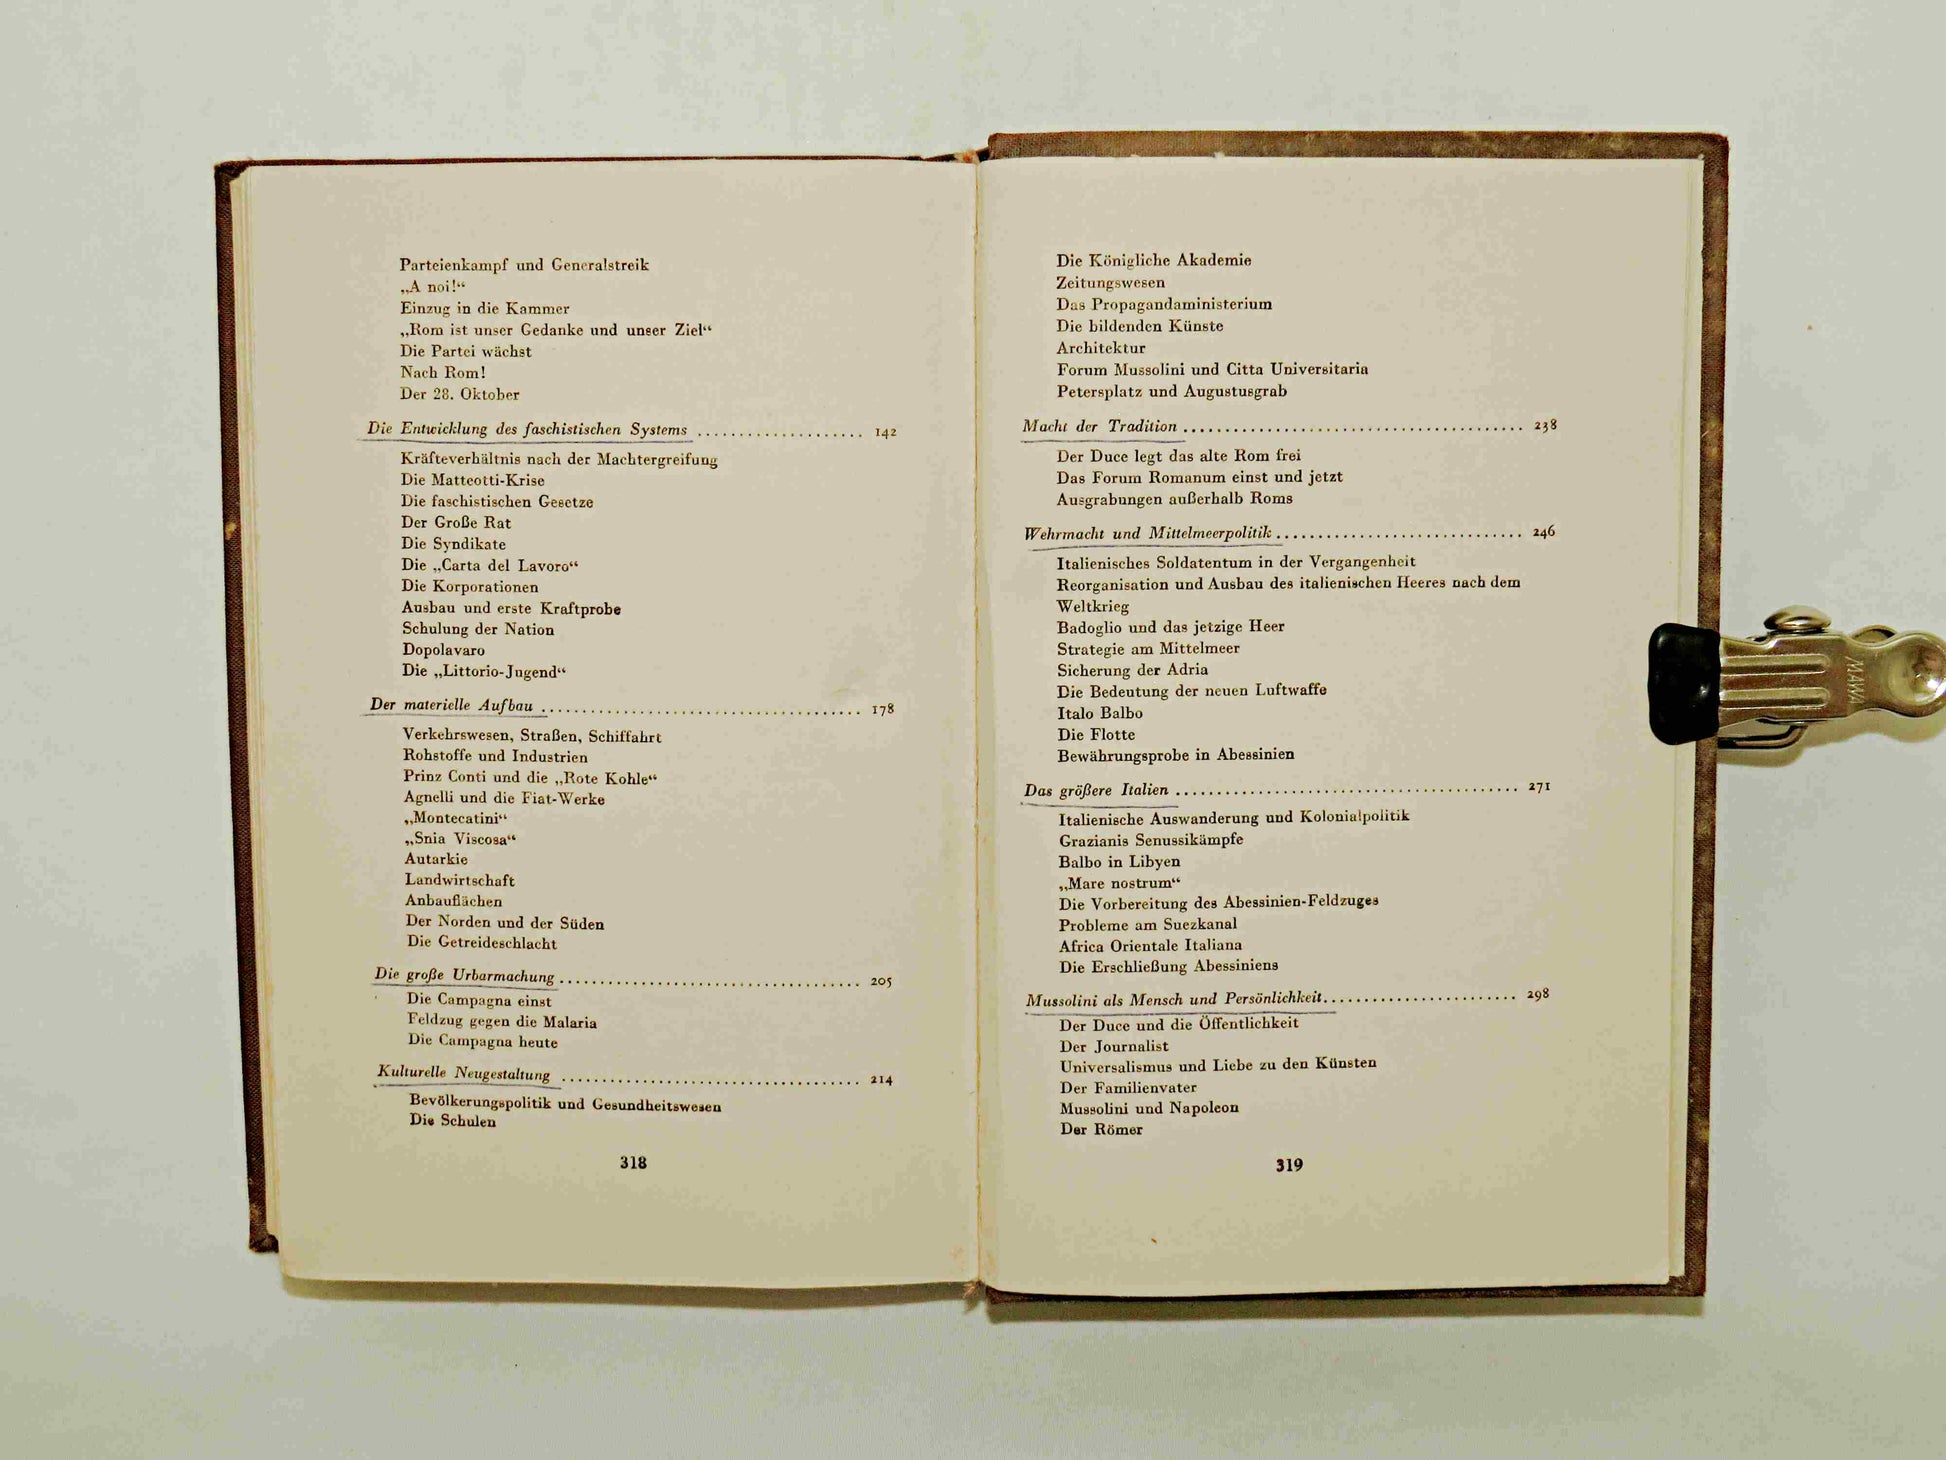 Parteienkampf und Generalstreik
„A noi!“
Einzug in die Kammer
„Rom ist unser Gedanke und unser Ziel“
Die Partei wächst
Nach Rom!
Der 28. Oktober
Die Entwicklung des faschistischen Systems .................... 142
Kräfteverhältnis nach der Machtergreifung
Die Matteotti-Krise
Die faschistischen Gesetze
Der Große Rat
Die Syndikate
Die „Carta del Lavoro“
Die Korporationen
Ausbau und erste Kraftprobe
Schulung der Nation
Dopolavaro
Die „Littorio-Jugend“
Der materielle Aufbau ....................................... 178
Verkehrswesen, Straßen, Schiffahrt
Rohstoffe und Industrien
Prinz Conti und die „Rote Kohle“
Agnelli und die Fiat-Werke
„Montecatini“
„Snia Viscosa“
Autarkie
Landwirtschaft
Anbauflächen
Der Norden und der Süden
Die Getreideschlacht
Die große Urbarmachung ..................................... 205
Die Campagna einst
Feldzug gegen die Malaria
Die Campagna heute
Kulturelle Neugestaltung ..................................... 214
Bevölkerungspolitik und Gesundheitswesen
Die Schulen
318
Die Königliche Akademie
Zeitungswesen
Das Propagandaministerium
Die bildenden Künste
Architektur
Forum Mussolini und Citta Universitaria
Petersplatz und Augustusgrab
Macht der Tradition .......................................... 238
Der Duce legt das alte Rom frei
Das Forum Romanum einst und jetzt
Ausgrabungen außerhalb Roms
Wehrmacht und Mittelmeerpolitik .............................. 246
Italienisches Soldatentum in der Vergangenheit
Reorganisation und Ausbau des italienischen Heeres nach dem
Weltkrieg
Badoglio und das jetzige Heer
Strategie am Mittelmeer
Sicherung der Adria
Die Bedeutung der neuen Luftwaffe
Italo Balbo
Die Flotte
Bewährungsprobe in Abessinien
Das größere Italien .......................................... 271
Italienische Auswanderung und Kolonialpolitik
Grazianis Senussikämpfe
Balbo in Libyen
„Mare nostrum“
Die Vorbereitung des Abessinien-Feldzuges
Probleme am Suezkanal
Africa Orientale Italiana
Die Erschließung Abessiniens
Mussolini als Mensch und Persönlichkeit ........................ 298
Der Duce und die Öffentlichkeit
Der Journalist
Universalismus und Liebe zu den Künsten
Der Familienvater
Mussolini und Napoleon
Der Römer
319
MAWA